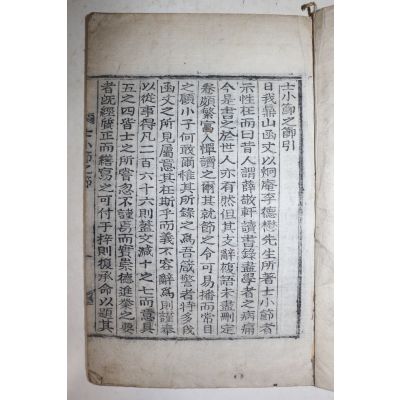 士小節之節引
日我鼎山函丈以炯庵李德懋先生所著士小節者
示性在而曰昔人謂薛敬軒讀書錄盡學者之病痛
今是書之於世人亦有然但其支辭複語未盡刪定
卷頗繁富人憚讀之爾其就節之令可易播而常目
之顧小子何敢爾惟其所錄之爲吾箴警者特多我
函丈之所見屬意其在斯乎而義不容辭焉則謹奉
以從事得凡二百六十六則蓋文減十之七而意具
五之四皆士之所嘗忽不謹易而實崇德進業之要
者旣經質正而繕寫之可付于梓則復承命以題其
士小節之節